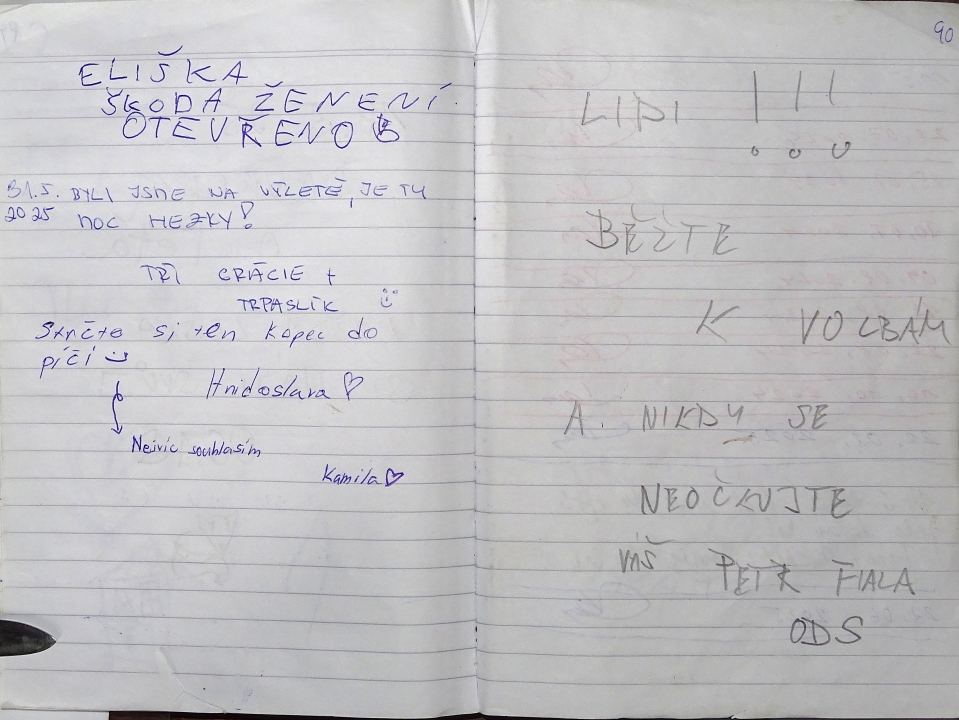 ELIŠKA
ŠKODA ŽENENÍ
OTEVŘENO
31.5. BYLI JSME NA VÝLETĚ, JE TU
2025 MOC HEZKY!
TŘI GRÁCIE +
TRPASLÍK
Strčte si ten kopec do
píčí
Hnidoslava
Nejvíc souhlasím
Kamila
90
LIDI !!!
BĚŽTE
K VOLBÁM
A. NIKDY SE
NEOČKUJTE
VÁŠ PETR FIALA
ODS